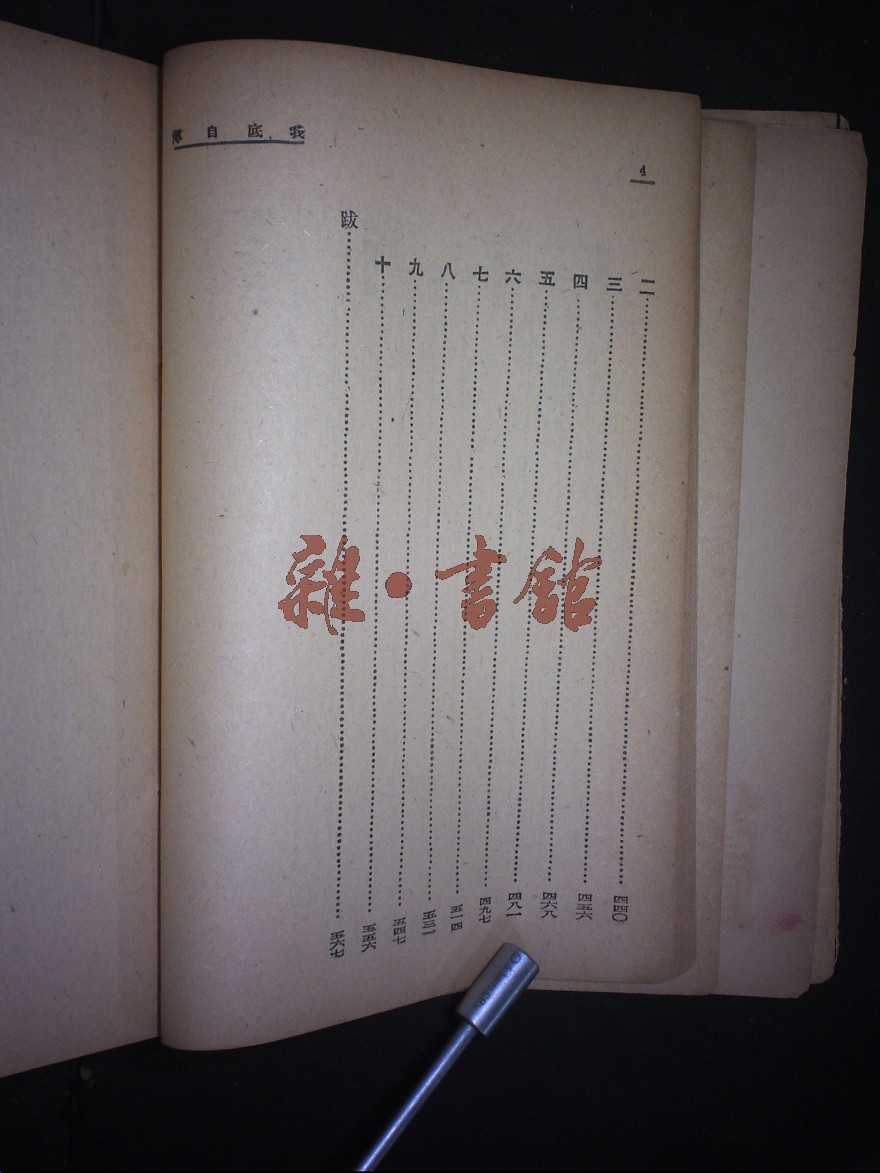 我底自傳
4
二……四四〇
三……四五六
四……四六八
五……四八一
六……四九七
七……五一四
八……五三一
九……五四七
十……五五六
跋……五六七
雜·書館